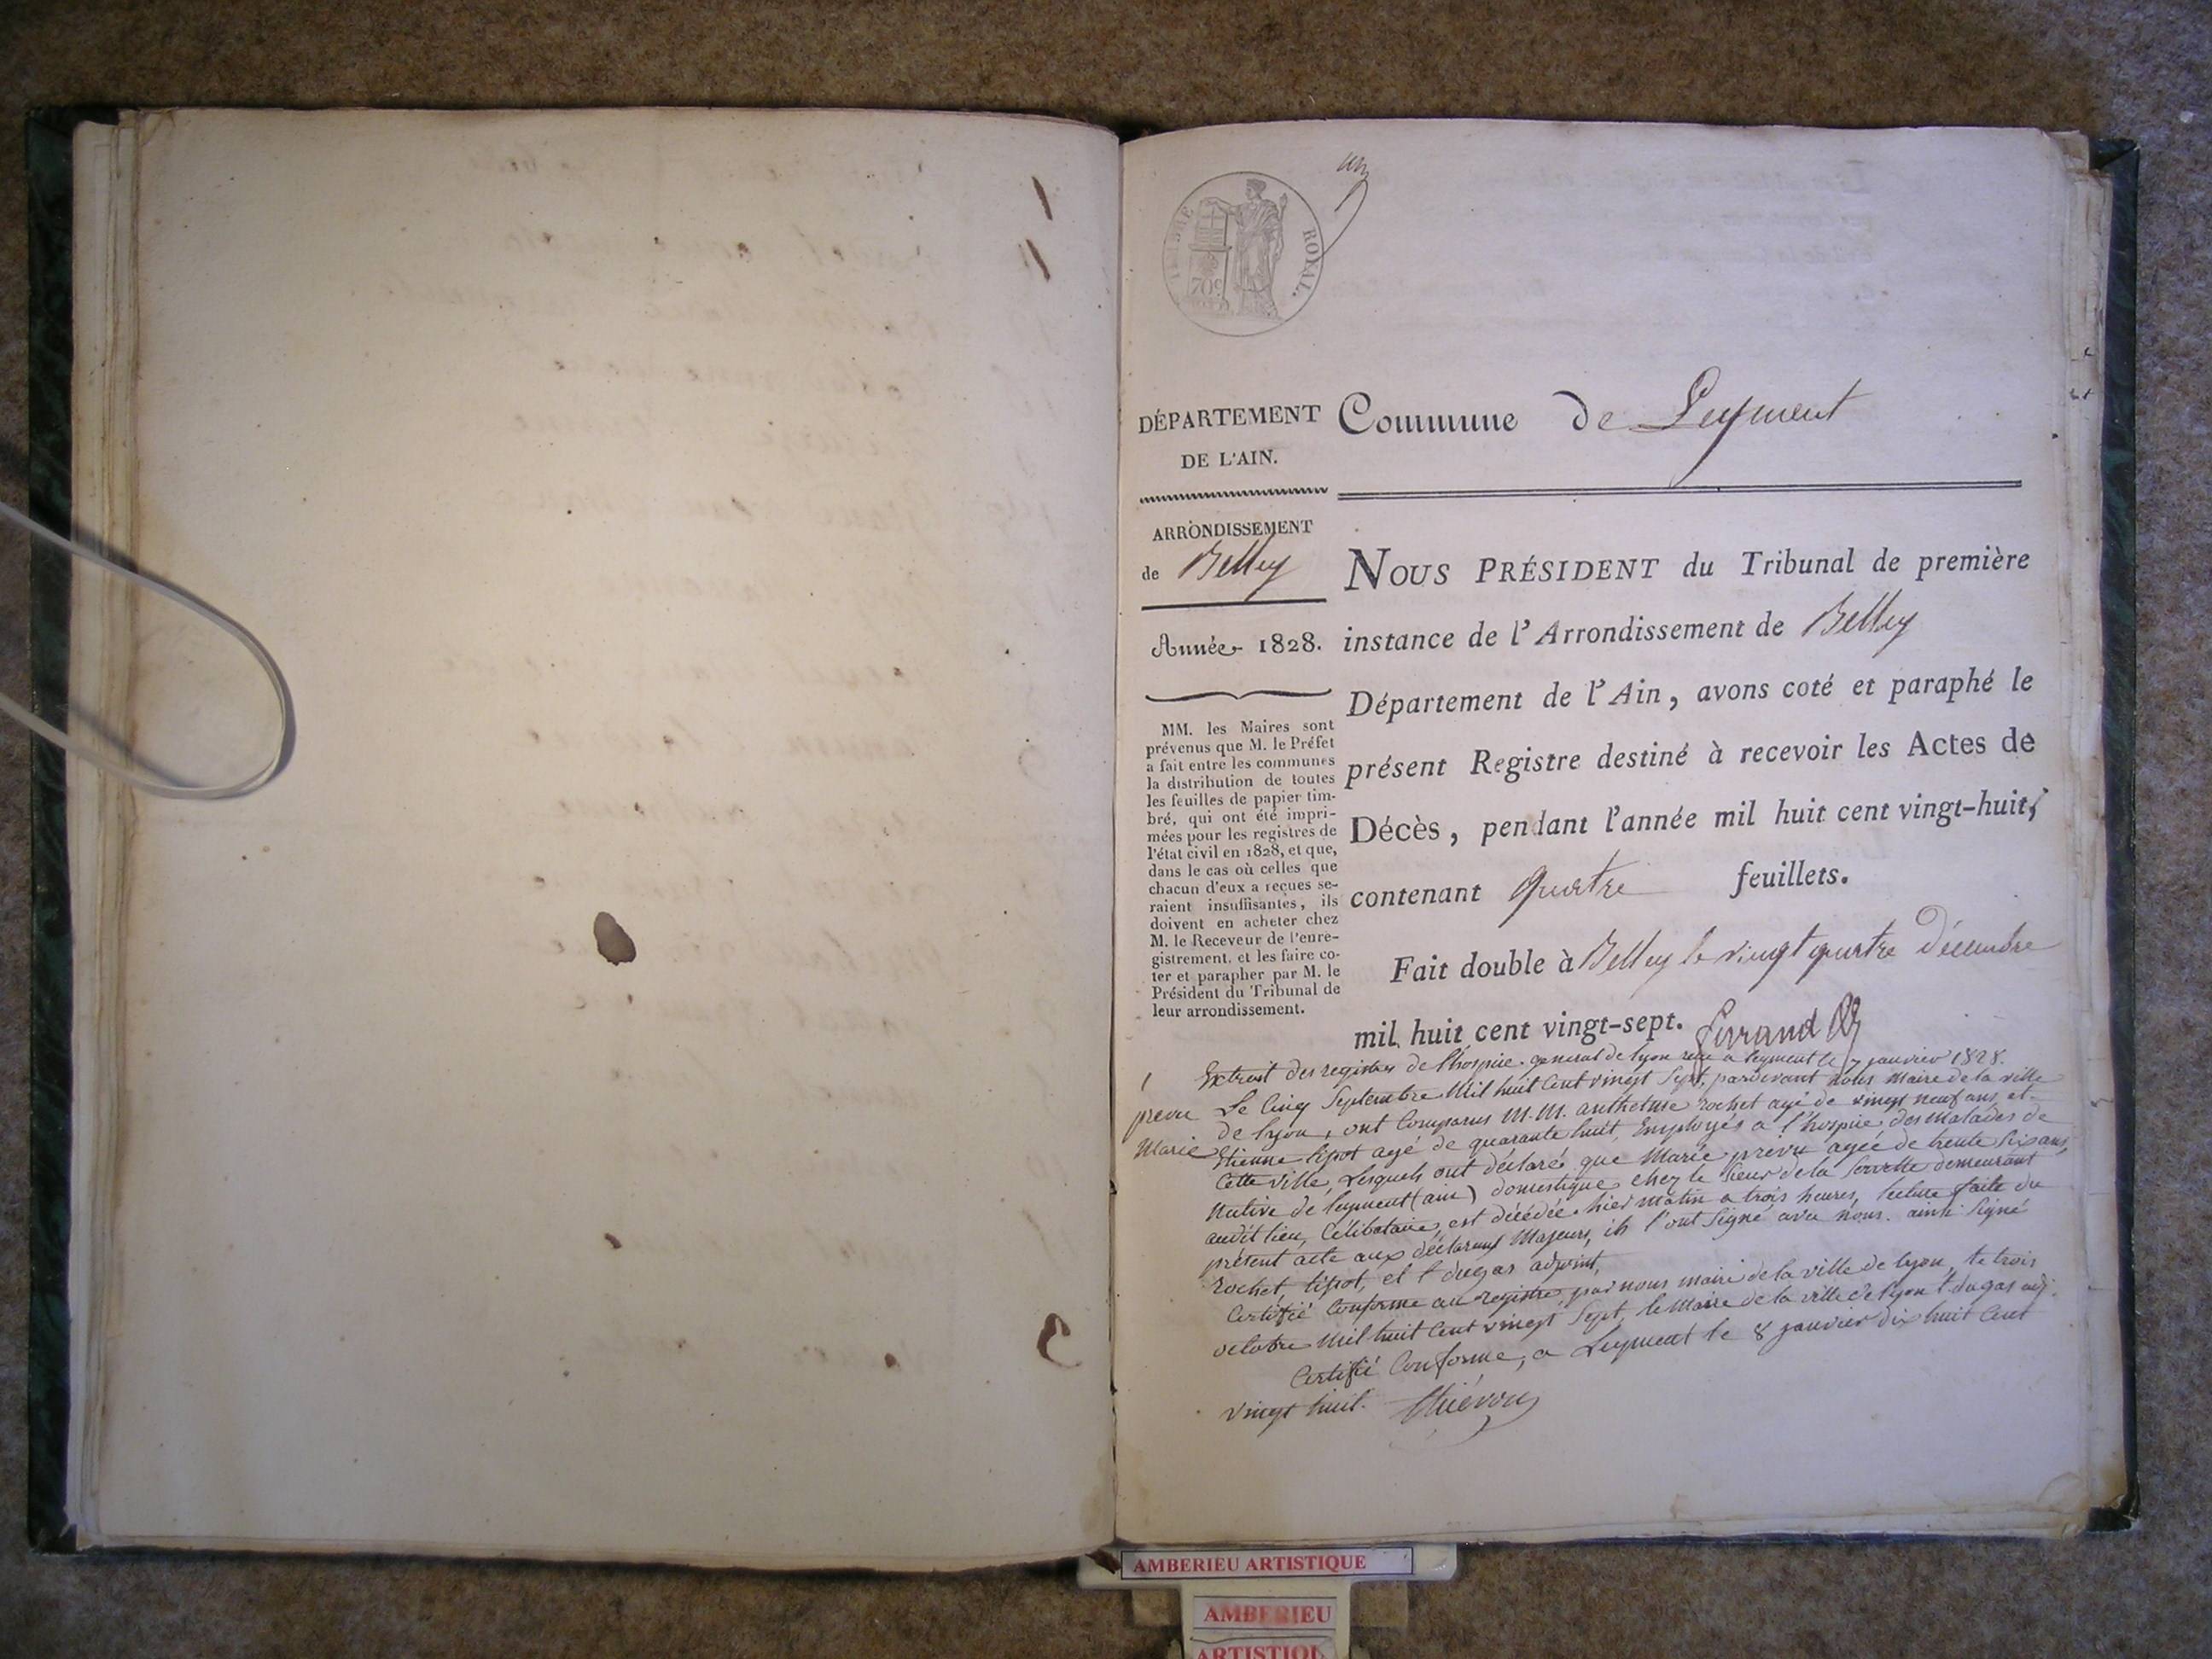 un
TIMBRE ROYAL.
DÉPARTEMENT
DE L'AIN.
Commune de Leyment
ARRONDISSEMENT
de Belley
Année 1828.
MM. les Maires sont
prévenus que M. le Préfet
a fait entre les communes
la distribution de toutes
les feuilles de papier tim-
bré, qui ont été impri-
mées pour les registres de
l'état civil en 1828, et que,
dans le cas où celles que
chacun d'eux a reçues se-
raient insuffisantes, ils
doivent en acheter chez
M. le Receveur de l'enre-
gistrement, et les faire co-
ter et parapher par M. le
Président du Tribunal de
leur arrondissement.
NOUS PRÉSIDENT du Tribunal de première
instance de l'Arrondissement de Belley
Département de l'Ain, avons coté et paraphé le
présent Registre destiné à recevoir les Actes de
Décès, pendant l'année mil huit cent vingt-huit,
contenant quatre feuillets.
Fait double à Belley le vingt quatre Décembre
mil huit cent vingt-sept.
1
prevu
Marie
Extrait des registres de l'hospice general de lyon reçu a leyment le 7 janvier 1828.
Le Cinq Septembre Mil huit Cent vingt Sept, pardevant Nous Maire de la ville
de lyon, ont Comparus M.M. anthelme rochet agé de vingt neuf ans, et
Etienne tipot agé de quarante huit, Employés a l'hospice des Malades de
Cette ville, Lesquels ont déclaré que Marie prevu agée de trente Six ans,
Native de leyment (ain) domestique chez le Sieur de la demeurant
audit lieu, Célibataire, est décédée hier matin a trois heures, lecture faite du
présent acte aux déclarans Majeurs, ils l'ont Signé avec nous. ainsi Signé
rochet, tipot, et t dugas adjoint,
Certifié Conforme au registre, par nous maire de la ville de lyon, le trois
octobre Mil huit Cent vingt Sept, le Maire de la ville de lyon t. dugas adj.
Certifié Conforme, a Leyment le 8 janvier dix huit Cent
vingt huit.
AMBERIEU ARTISTIQUE
AMBERIEU